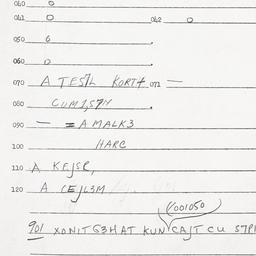 040 0
041 0 042 0
050 6
060 0
070 A TES7L KORT# 071 —
080 CUM1,S7N
090 — = A MALK3
100 HARC
110 A KEJSR,
120 A CEJL3M
Y001050
901 XONIT G3HAT KUN CAJT CU S7PI